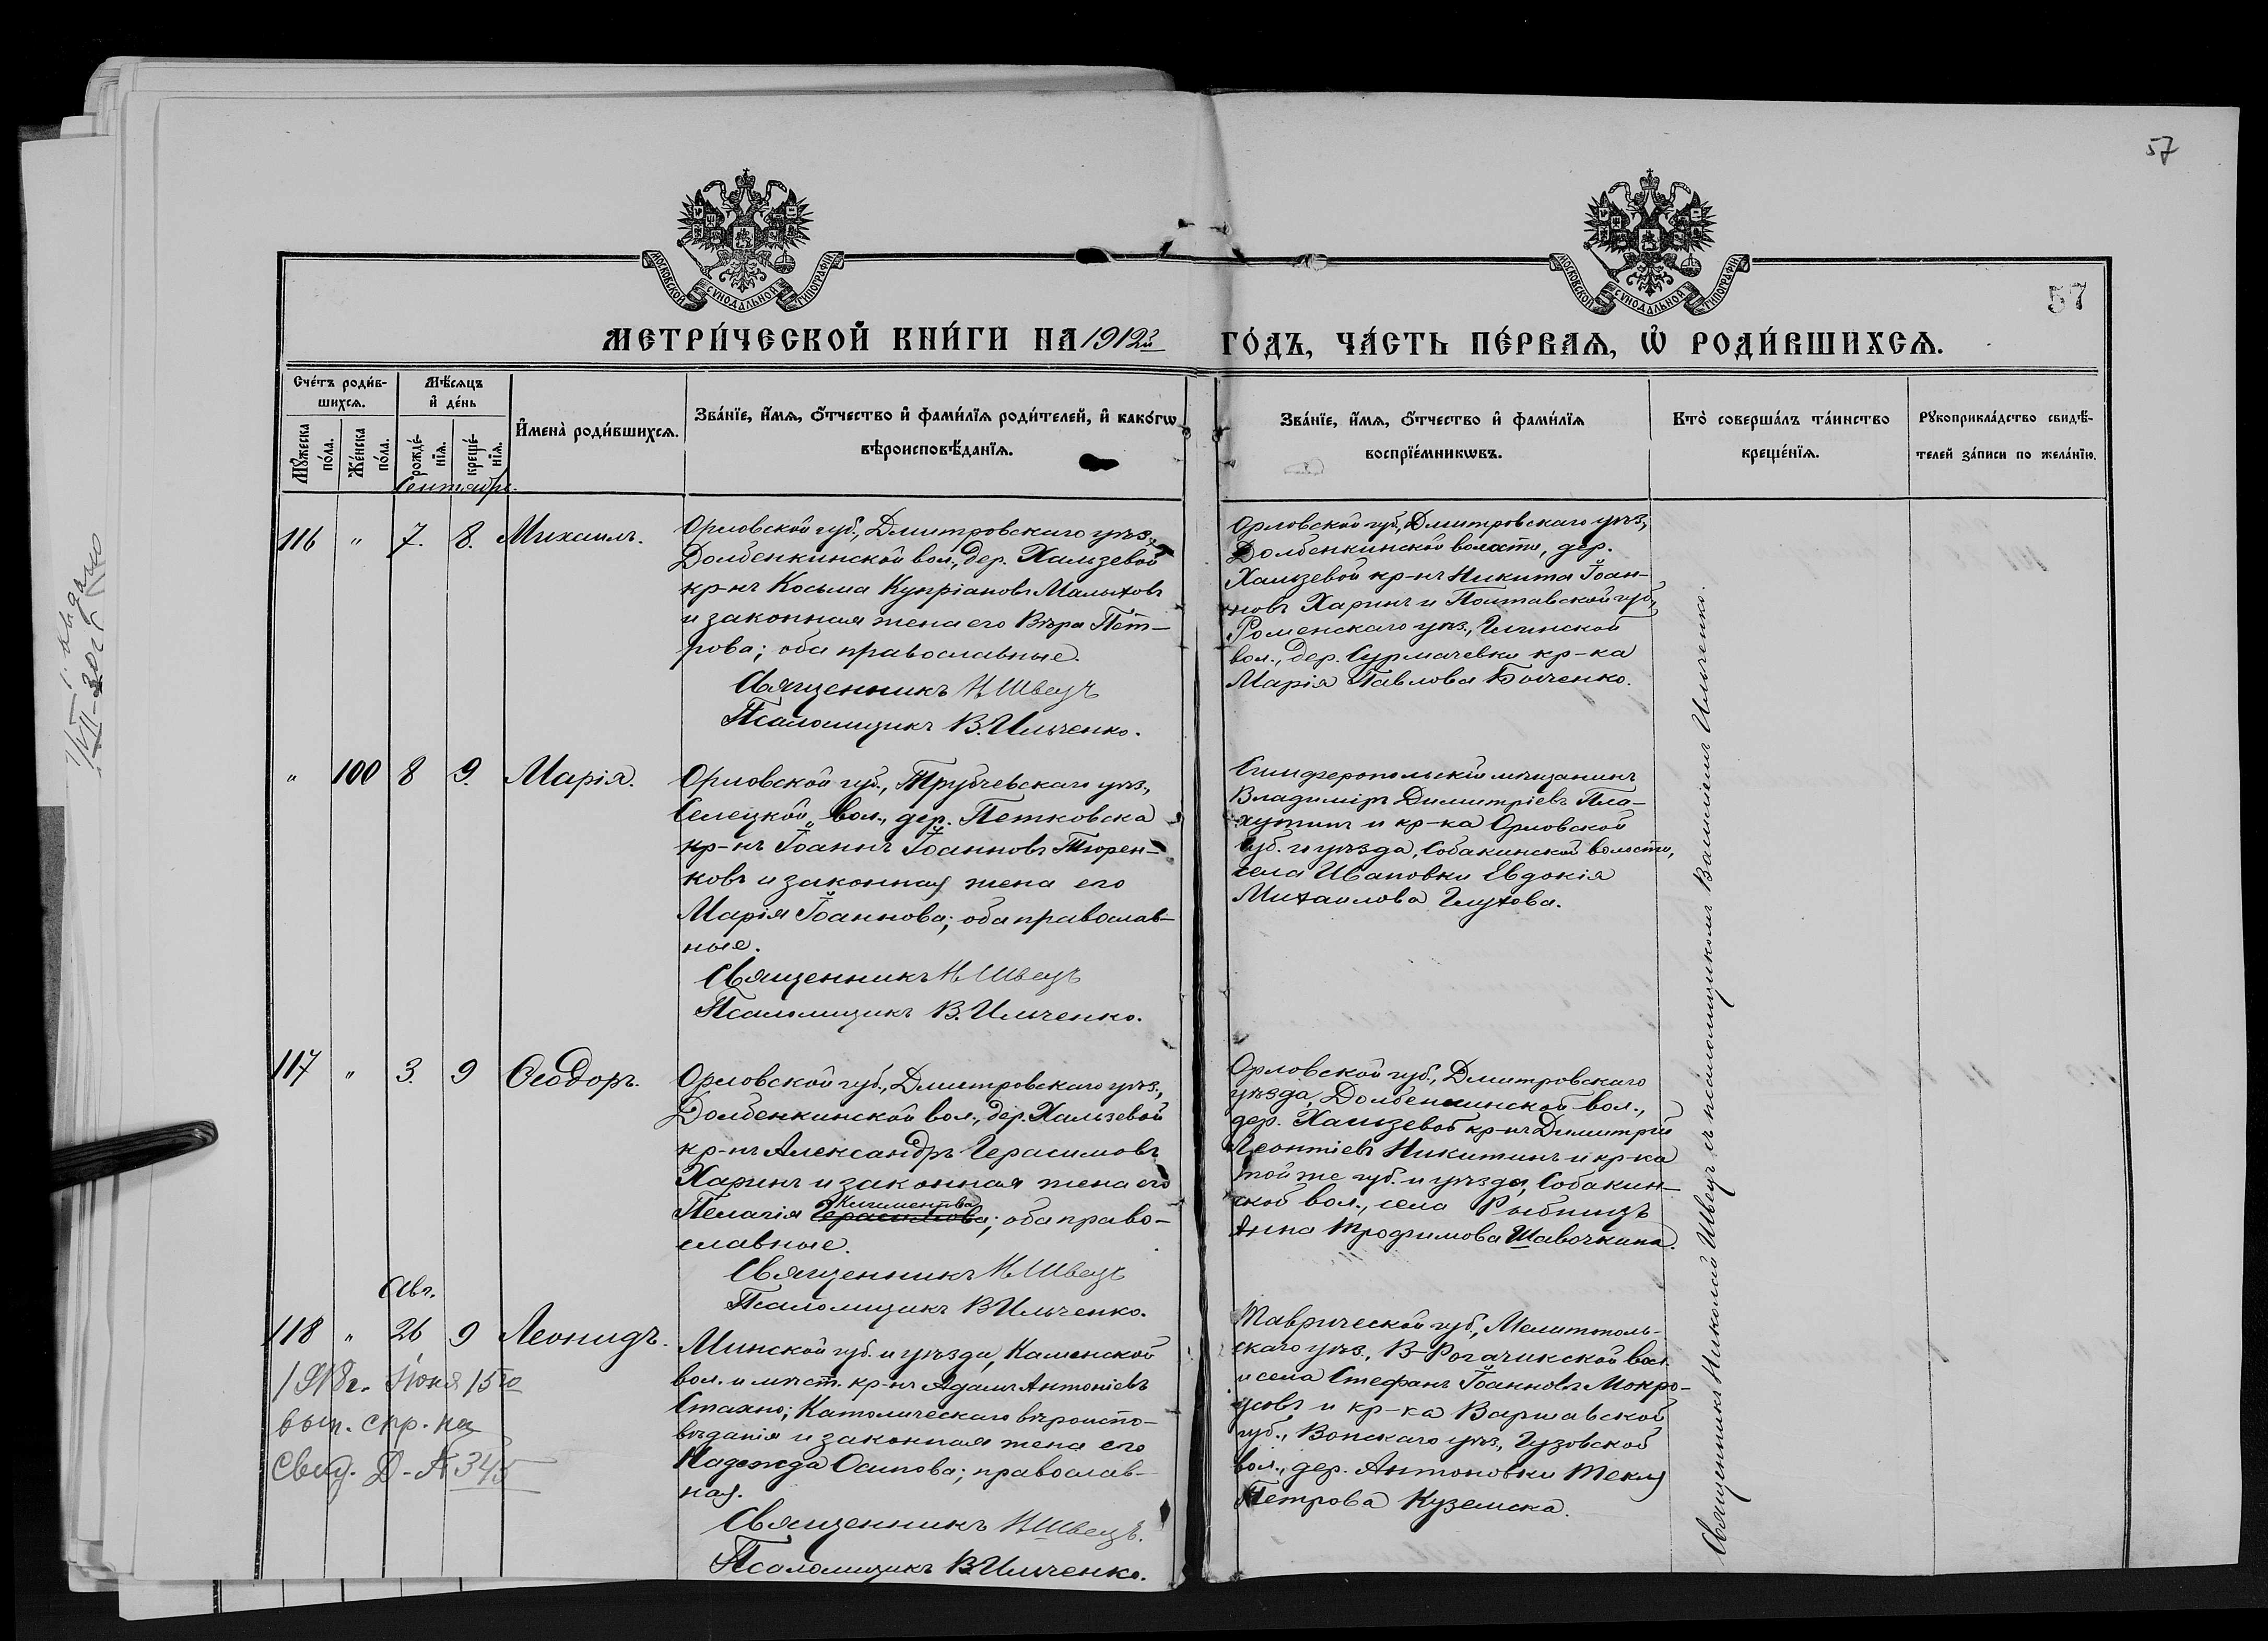 57
МОСКОВСКОЙ СѴНОДАЛЬНОЙ ТИПОГРАФІИ
МОСКОВСКОЙ СѴНОДАЛЬНОЙ ТИПОГРАФІИ
57
МЕТРИ́ЧЕСКОЙ КНИ́ГИ НА 1912й ГО́ДЪ, ЧА́СТЬ ПЕ́РВАЯ, Ѽ РОДИ́ВШИХСЯ.
Сче́тъ роди́в-
шихсѧ.
Мѣ́сѧцъ
и҆ де́нь
Мꙋ́жеска по́ла.
Же́нска по́ла.
рожде́-
нїѧ.
креще́-
нїѧ.
И҆мена̀ роди́вшихсѧ.
Зва́нїе, и҆́мѧ, ѻ҆́тчество и҆ фами́лїѧ роди́телей, и҆ како́гѡ
вѣроисповѣ́данїѧ.
Зва́нїе, и҆́мѧ, ѻ҆́тчество и҆ фами́лїѧ
воспрїе́мникѡвъ.
Кто̀ соверша́лъ та́инство
креще́нїѧ.
Рꙋкоприкла́дство свидѣ́-
телей за́писи по жела́нїю.
Сентябрь.
116 " 7. 8. Михаилъ.
Орловской губ., Дмитровскаго уѣз.,
Долбенкинской вол., дер. Хальзевой
кр-нъ Косьма Купріановъ Малыховъ
и законная жена его Вѣра Пет-
рова; оба православные.
Священникъ Н Швецъ
Псаломщикъ В. Ильченко.
Орловской губ., Дмитровскаго уѣз.,
Долбенкинской волости, дер.
Хальзевой кр-нъ Никита Іоан-
новъ Харинъ и Полтавской губ.,
Роменскаго уѣз., Глинской
вол., дер. Сурмачевки кр-ка
Марія Павлова
" 100 8 9. Марія.
Орловской губ., Трубчевскаго уѣз.,
Селецкой вол., дер. Петковска
кр-нъ Іоаннъ Іоанновъ Тюрен-
ковъ и законная жена его
Марія Іоаннова; оба православ-
ные.
Священникъ Н Швецъ
Псаломщикъ В. Ильченко.
Симферопольскій мѣщанинъ
Владиміръ Димитріевъ Пла-
хутинъ и кр-ка Орловской
губ. и уѣзда, Собакинской волости,
села Ивановки Евдокія
Михаилова Глухова.
117 " 3. 9 Ѳеодоръ.
Орловской губ., Дмитровскаго уѣз.,
Долбенкинской вол., дер. Хальзевой
кр-нъ Александръ Герасимовъ
Харинъ и законная жена его
Климентова
Пелагія Герасимова; оба право-
славные.
Священникъ Н Швецъ
Псаломщикъ В Ильченко.
Орловской губ., Дмитровскаго
уѣзда, Долбенкинской вол.,
дер. Хальзевой кр-нъ Димитрій
Леонтіевъ Никитинъ и кр-ка
той же губ. и уѣзда, Собакин-
ской вол., села Рыбницъ
Анна Трофимова Шавочкина.
Авг.
118 " 26 9 Леонидъ.
Минской губ. и уѣзда, Каменской
вол. и мѣст. кр-нъ Адамъ Антоніевъ
Стахно; Католическаго вѣроиспо-
вѣданія и законная жена его
Надежда Осипова; православ-
ная.
Священникъ Н Швецъ.
Псаломщикъ В Ильченко.
Таврической губ., Мелитополь-
скаго уѣз., В-Рогачикской вол.
и села Стефанъ Іоанновъ Мокро-
усовъ и кр-ка Варшавской
губ., Гузовской
вол., дер. Антоновки Текля
Петрова Куземска.
1918г. Іюня 15го
вып. спр. на
свид. Д-А 345
Священникъ Николай Швецъ съ псаломщикомъ Василіемъ Ильченко.